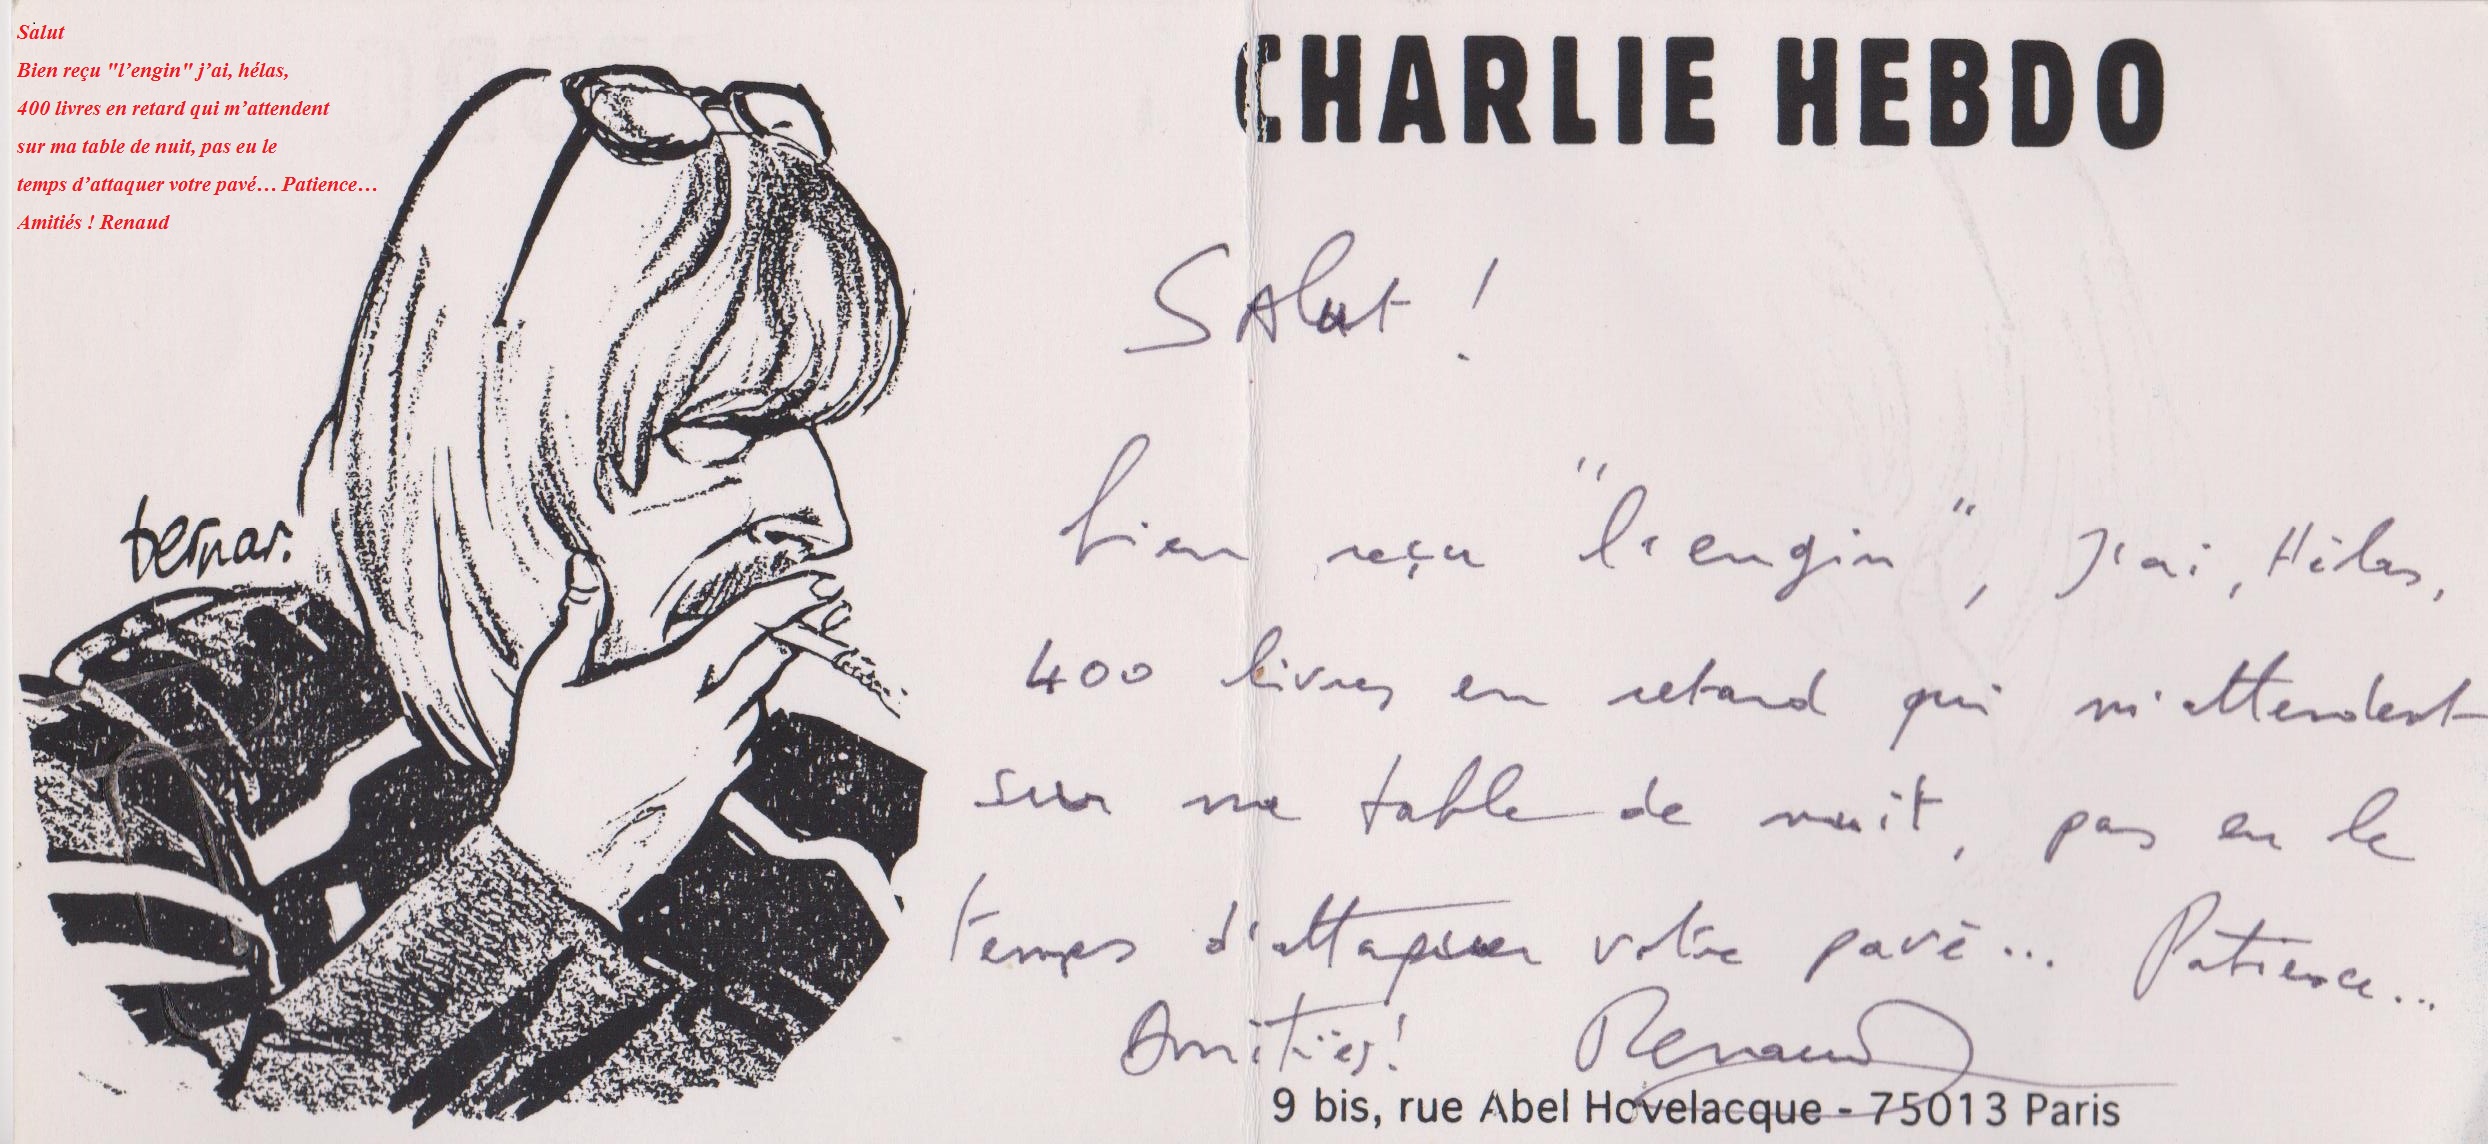 Salut
Bien reçu "l'engin" j'ai, hélas,
400 livres en retard qui m'attendent
sur ma table de nuit, pas eu le
temps d'attaquer votre pavé… Patience…
Amitiés ! Renaud
CHARLIE HEBDO
Salut !
bien reçu "l'engin", J'ai, Hélas,
400 livres en retard qui m'attendent
sur ma table de nuit, pas eu le
temps d'attaquer votre pavé... Patience...
Amitiés! Renaud
9 bis, rue Abel Hovelacque - 75013 Paris
bernar.